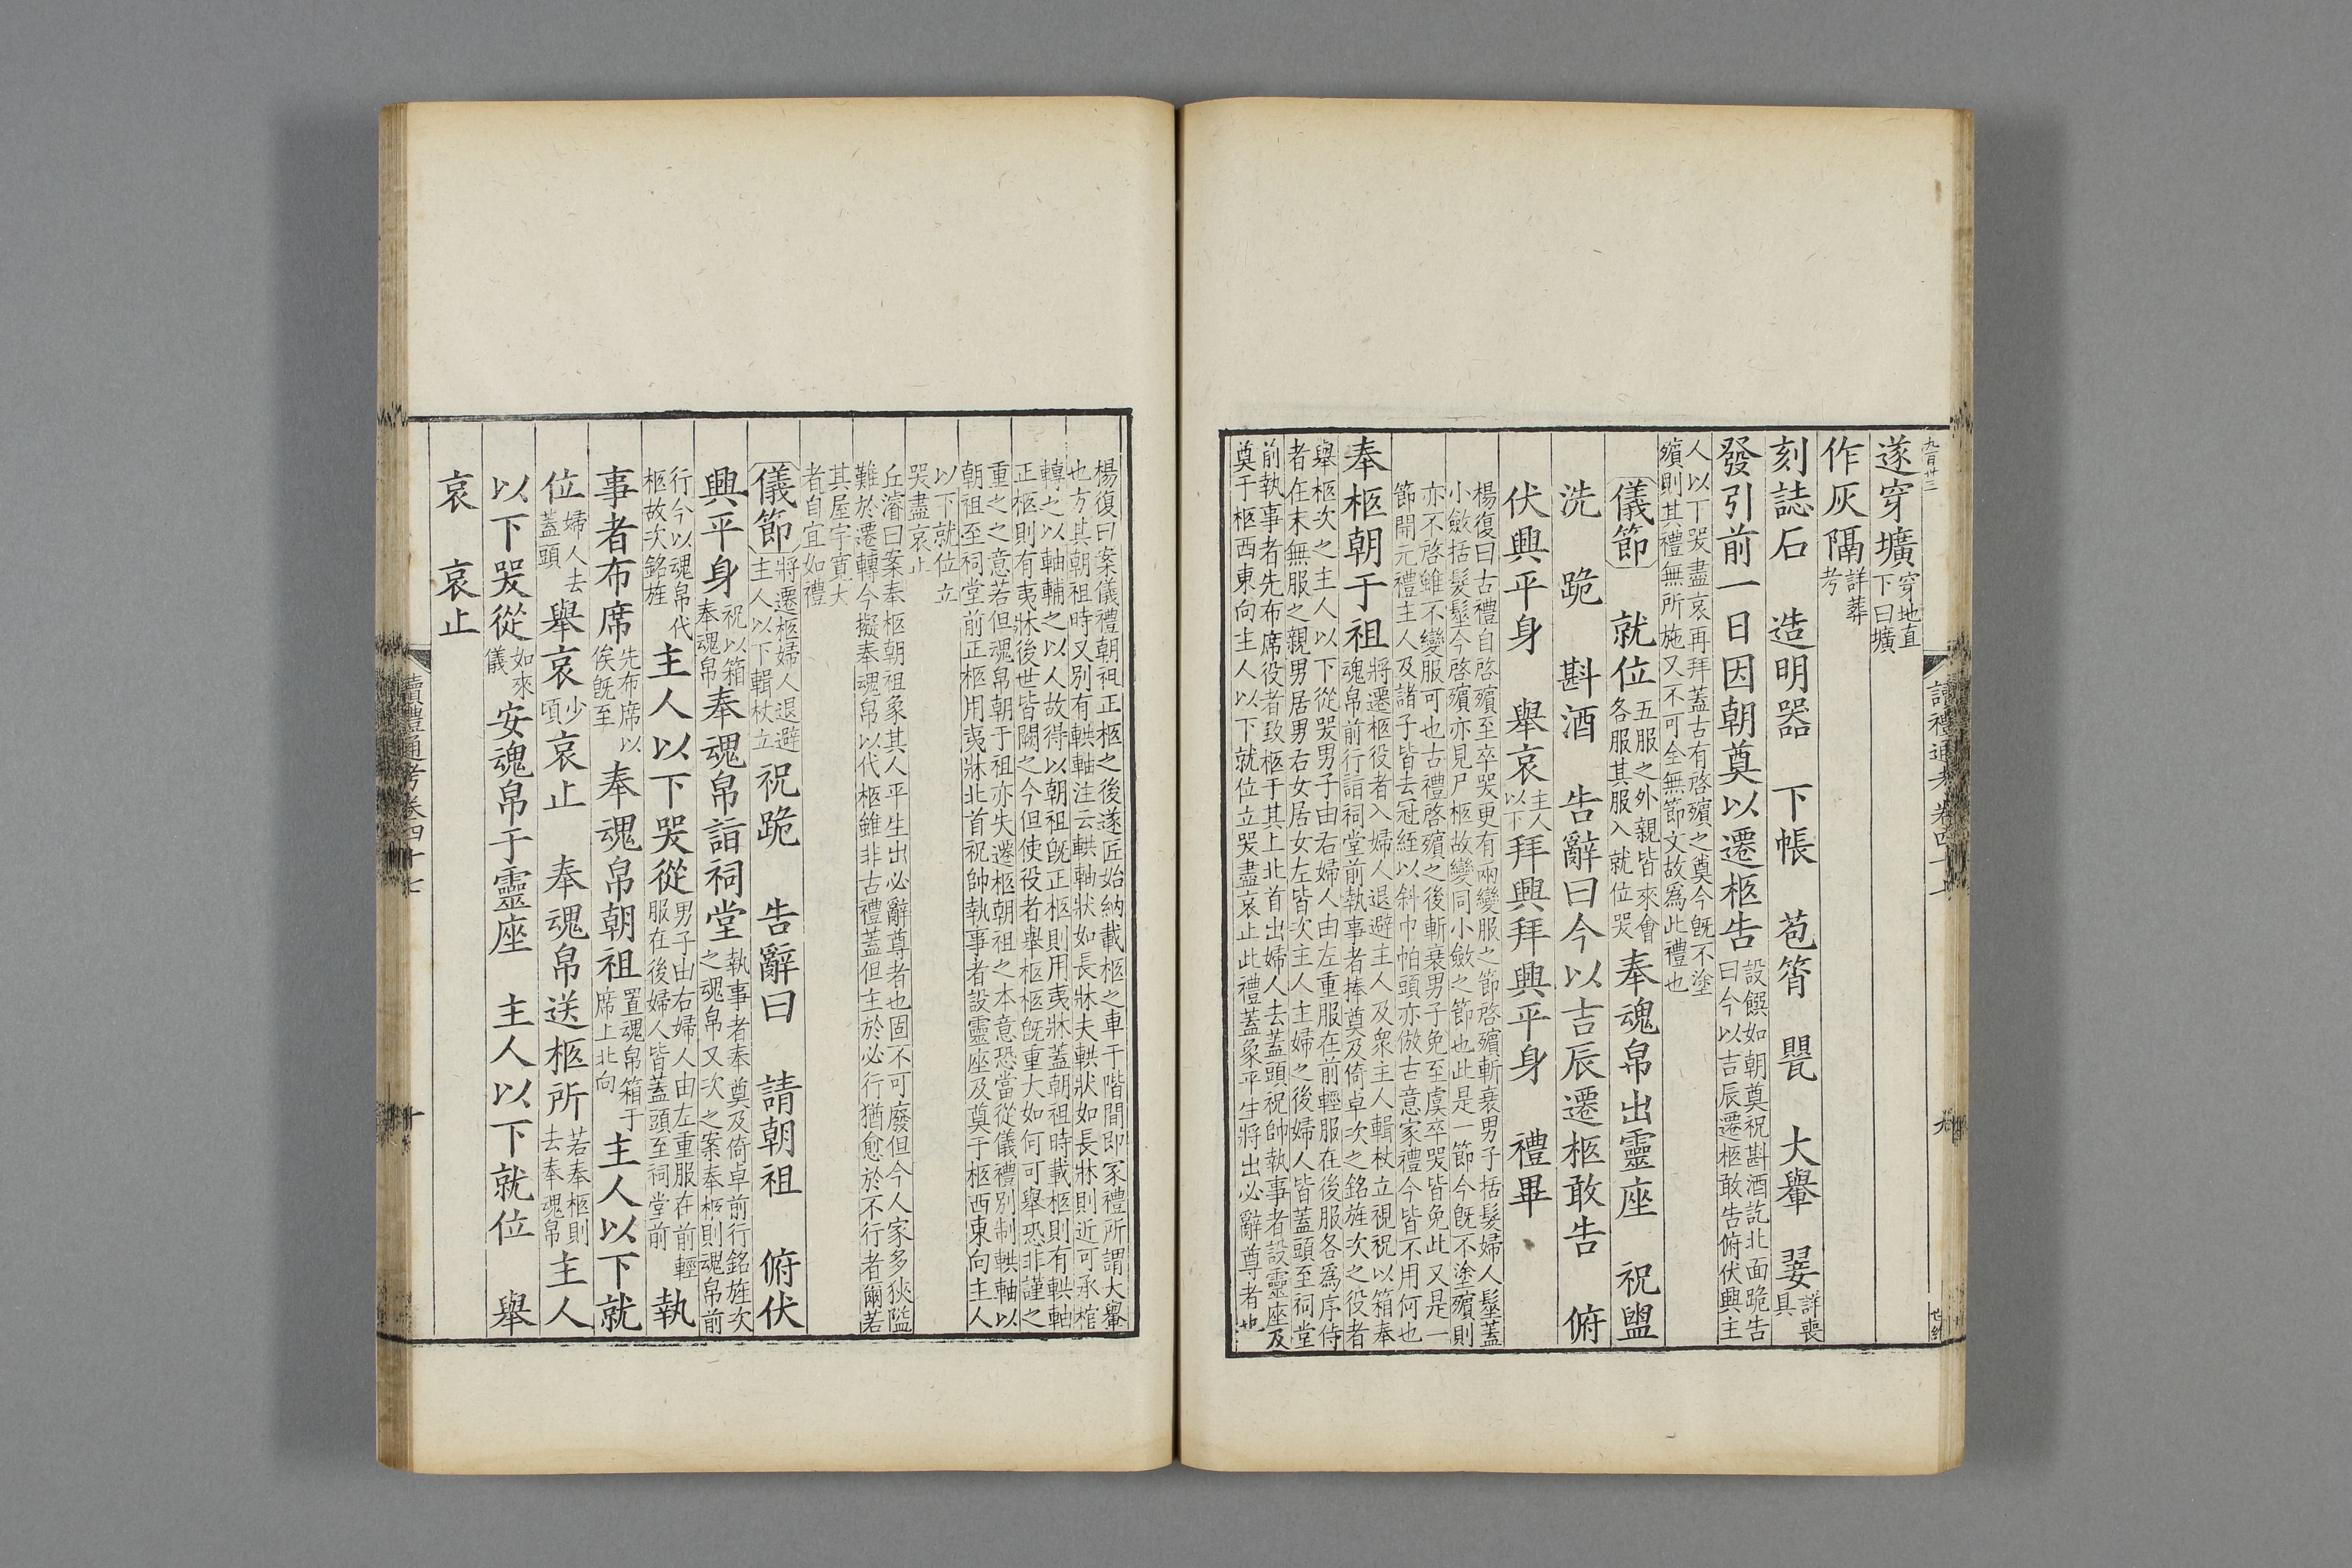 九百卅三
遂穿壙穿地直下曰壙
作灰隔詳葬考
刻誌石　造明器　下帳　苞筲　甖　大轝　翣詳喪具
發引前一日因朝奠以遷柩告設饌如朝奠祝斟酒訖北面跪告曰今以吉辰遷柩敢告俯伏興主
人以下哭盡哀再拜蓋古有啓殯之奠今旣不塗殯則其禮無所施又不可全無節文故爲此禮也
儀節　就位五服之外親皆來會各服其服入就位哭奉魂帛出靈座　祝盥
洗　跪　斟酒　告辭曰今以吉辰遷柩敢告　俯
伏興平身　舉哀主人以下拜興拜興平身　禮畢
楊復曰古禮自啓殯至卒哭更有兩變服之節啓殯斬衰男子括髮婦人髽蓋
小斂括髮髽今啓殯亦見尸柩故變同小斂之節也此是一節今旣不塗殯則
亦不啓雖不變服可也古禮啓殯之後斬衰男子免至虞卒哭皆免此又是一
節開元禮主人及諸子皆去冠絰以斜巾帕頭亦倣古意家禮今皆不用何也
奉柩朝于祖將遷柩役者入婦人退避主人及衆主人輯杖立視祝以箱奉魂帛前行詣祠堂前執事者捧奠及倚卓次之銘旌次之役者
舉柩次之主人以下從哭男子由右婦人由左重服在前輕服在後服各爲序侍者在末無服之親男居男右女居女左皆次主人主婦之後婦人皆蓋頭至祠堂
前執事者先布席役者致柩于其上北首出婦人去蓋頭祝帥執事者設靈座及奠于柩西東向主人以下就位立哭盡哀止此禮蓋象平生將出必辭尊者也
讀禮通考卷四十七
楊復曰案儀禮朝祖正柩之後遂匠始納載柩之車于階間即家禮所謂大轝
也方其朝祖時又別有輁軸注云輁軸狀如長牀夫輁狀如長牀則近可承棺
轉之以軸輔之以人故得以朝祖旣正柩則用夷牀蓋朝祖時載柩則有輁軸
正柩則有夷牀後世皆闕之今但使役者舉柩柩旣重大如何可舉恐非謹之
重之之意若但魂帛朝于祖亦失遷柩朝祖之本意恐當從儀禮別制輁軸以
朝祖至祠堂前正柩用夷牀北首祝帥執事者設靈座及奠于柩西東向主人
以下就位立
哭盡哀止
丘濬曰案奉柩朝祖象其人平生出必辭尊者也固不可廢但今人家多狹隘
難於遷轉今擬奉魂帛以代柩雖非古禮蓋但主於必行猶愈於不行者爾若
其屋宇寛大
者自宜如禮
儀節將遷柩婦人退避主人以下輯杖立祝跪　告辭曰　請朝祖　俯伏
興平身祝以箱奉魂帛奉魂帛詣祠堂執事者奉奠及倚卓前行銘旌次之魂帛又次之案奉柩則魂帛前
行今以魂帛代柩故次銘旌主人以下哭從男子由右婦人由左重服在前輕服在後婦人皆蓋頭至祠堂前執
事者布席先布席以俟旣至奉魂帛朝祖置魂帛箱于席上北向主人以下就
位婦人去蓋頭舉哀少頃哀止　奉魂帛送柩所若奉柩則去奉魂帛主人
以下哭從如來儀安魂帛于靈座　主人以下就位　舉
哀　哀止
讀禮通考卷四十七
十